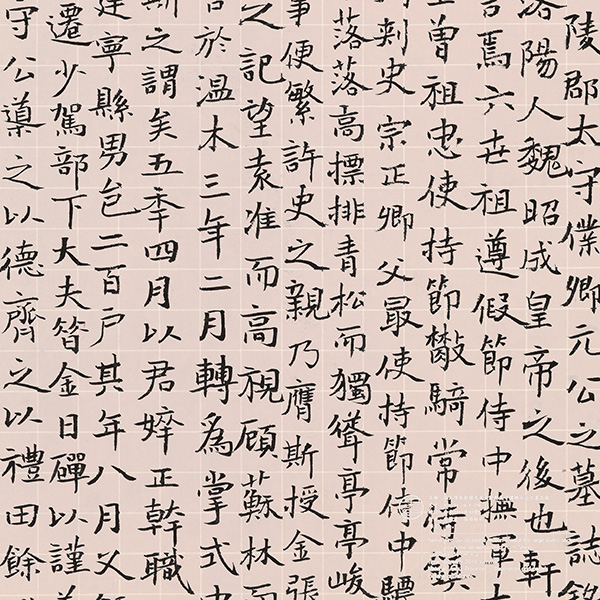 陵郡太守僕卿元公之墓誌銘
洛陽人魏昭成皇帝之後也軒
焉六世祖遵假節侍中撫軍
曾祖忠使持節散騎常侍鎮
刺史宗正卿父最使持節侍中驃
落落高摽排青松而獨聳亭亭峻
事便繁許史之親乃膺斯授金張
之記望袁准而高視顧蘇林而
於溫木三年二月轉為掌式中
斯之謂矣五年四月以君婞正幹職
建寧縣男邑二百戶其年八月又
遷少駕部下大夫昝金日磾以謹
守公導之以德齊之以禮田餘